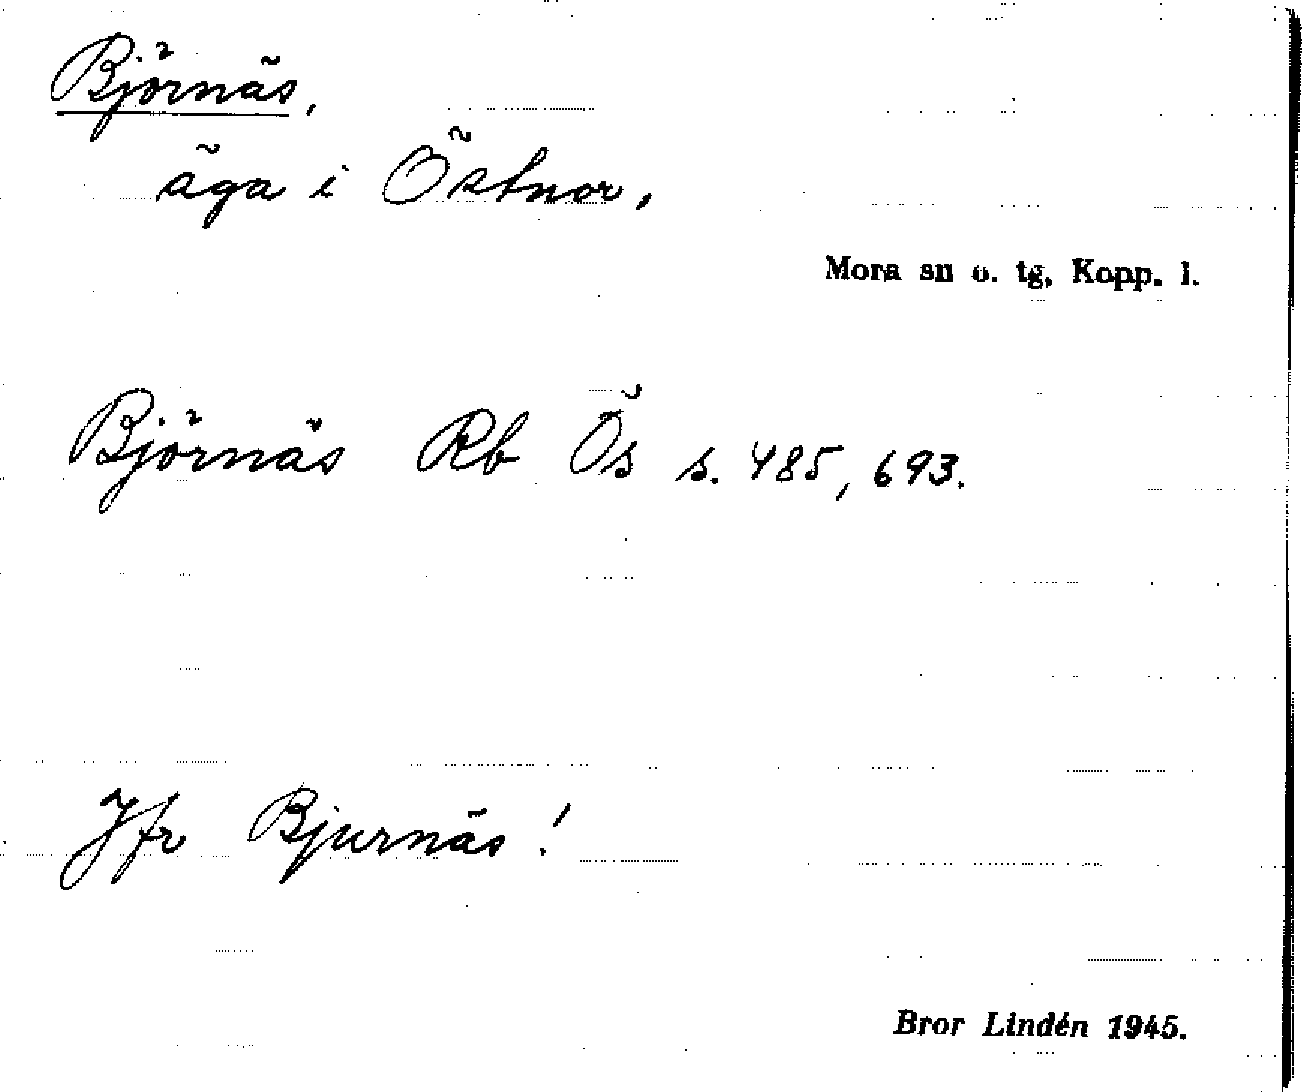 Björnäs,
äga i Östnor,
Mora sn o. tg, Kopp. l.
Björnäs Rb Ös s. 485, 693.
Jfr Bjurnäs!
Bror Lindén 1945.